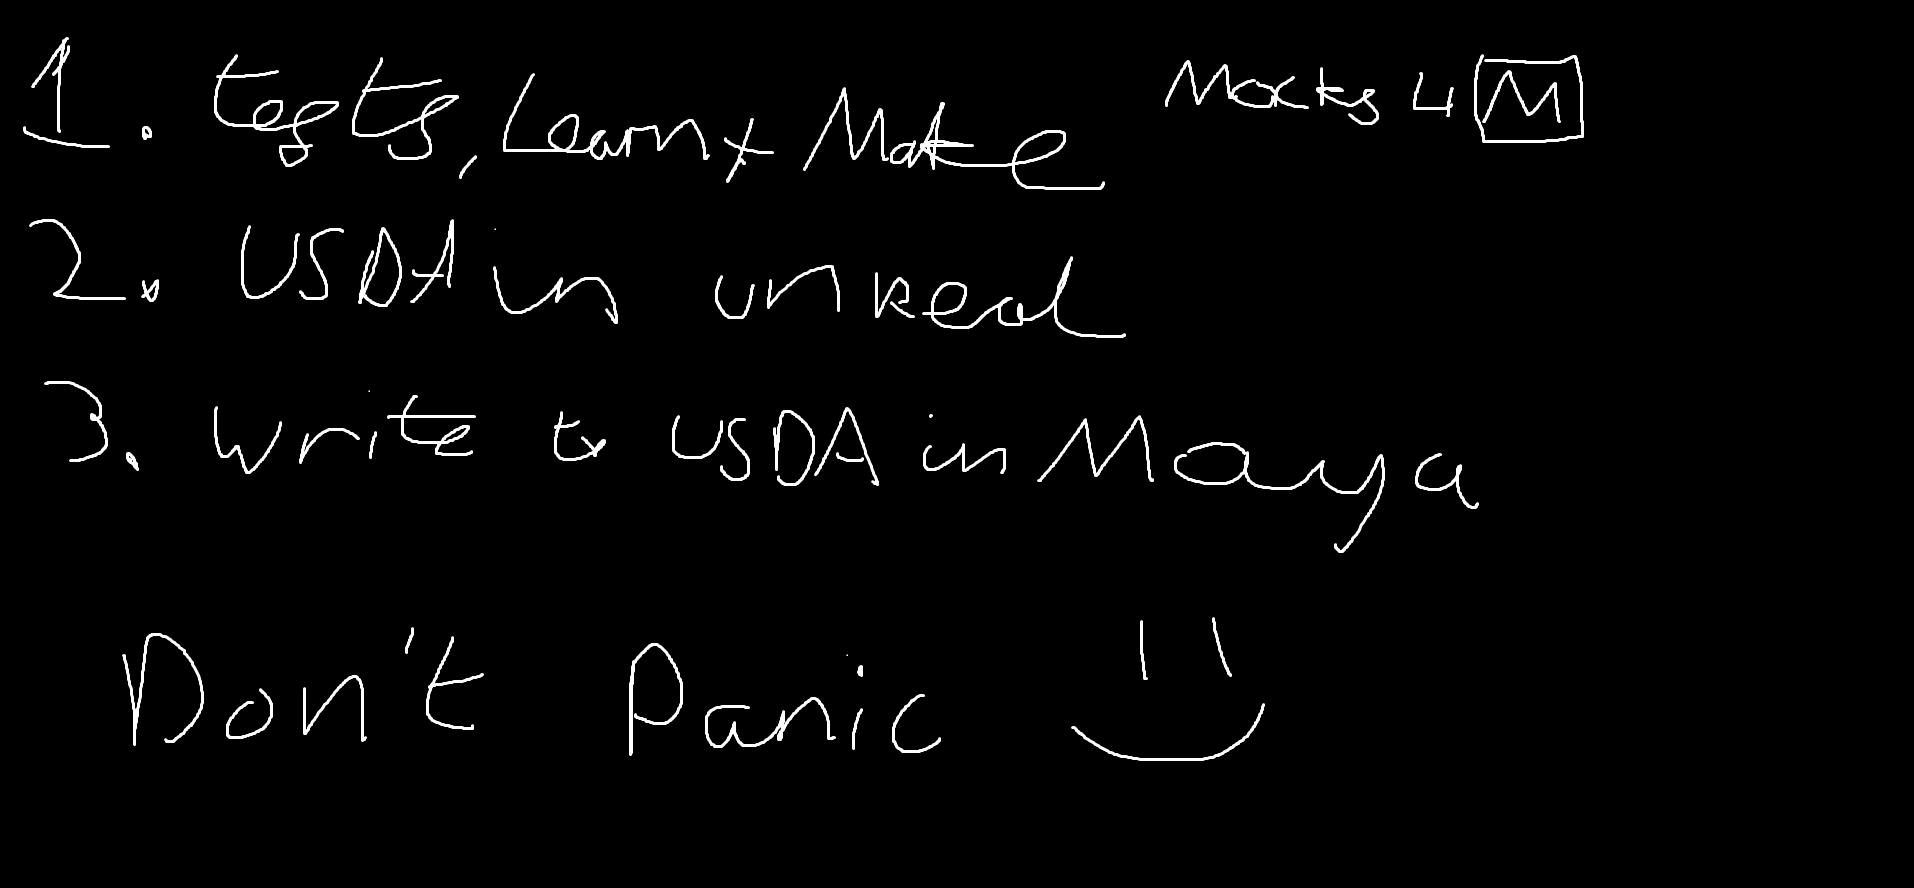 1. tests, Learn + Make Mocks 4 M
2. USDA in unreal
3. write to USDA in Maya
Don't Panic